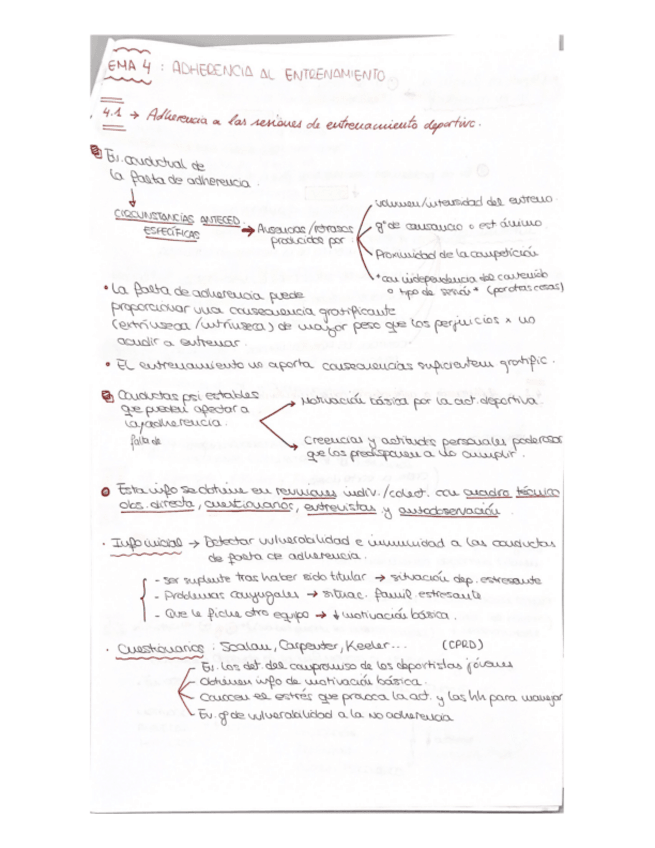 EMA 4 : ADHERENCIA AL ENTRENAMIENTO
4.1 → Adherencia a las sesiones de entrenamiento deportivo.
Ev. conductual de
la falta de adherencia.
↓
CIRCUNSTANCIAS ANTECED.
ESPECÍFICAS → Ausencias/retrasos
producidos por
volumen/intensidad del entreno
gº de cansancio o est. ánimo
Proximidad de la competición
*con independencia del contenido
o tipo de sesión* (por otras cosas)
• La falta de adherencia puede
proporcionar una consecuencia gratificante
(extrínseca/intrínseca) de mayor peso que los perjuicios x no
acudir a entrenar.
• El entrenamiento no aporta consecuencias suficientem. gratific.
Conductas psi estables
que pueden afectar a
la adherencia.
falta de
→ Motivación básica por la act. deportiva.
→ Creencias y actitudes personales poderosas
que los predisponen a no cumplir.
Esta info se obtiene en reuniones indiv./colect. con cuadro técnico
obs. directa, cuestionarios, entrevistas y autoobservación.
· Info inicial → Detectar vulnerabilidad e inmunidad a las conductas
de falta de adherencia.
- Ser suplente tras haber sido titular → situación dep. estresante
- Problemas conyugales → situac. famil. estresante
- Que le fiche otro equipo → ↓ motivación básica.
· Cuestionarios : Scalan, Carpenter, Keeler... (CPRD)
Ev. los det. del compromiso de los deportistas jóvenes
Obtienen info de motivación básica.
Conocen el estrés que provoca la act. y las hh para manejar
Ev. gº de vulnerabilidad a la no adherencia